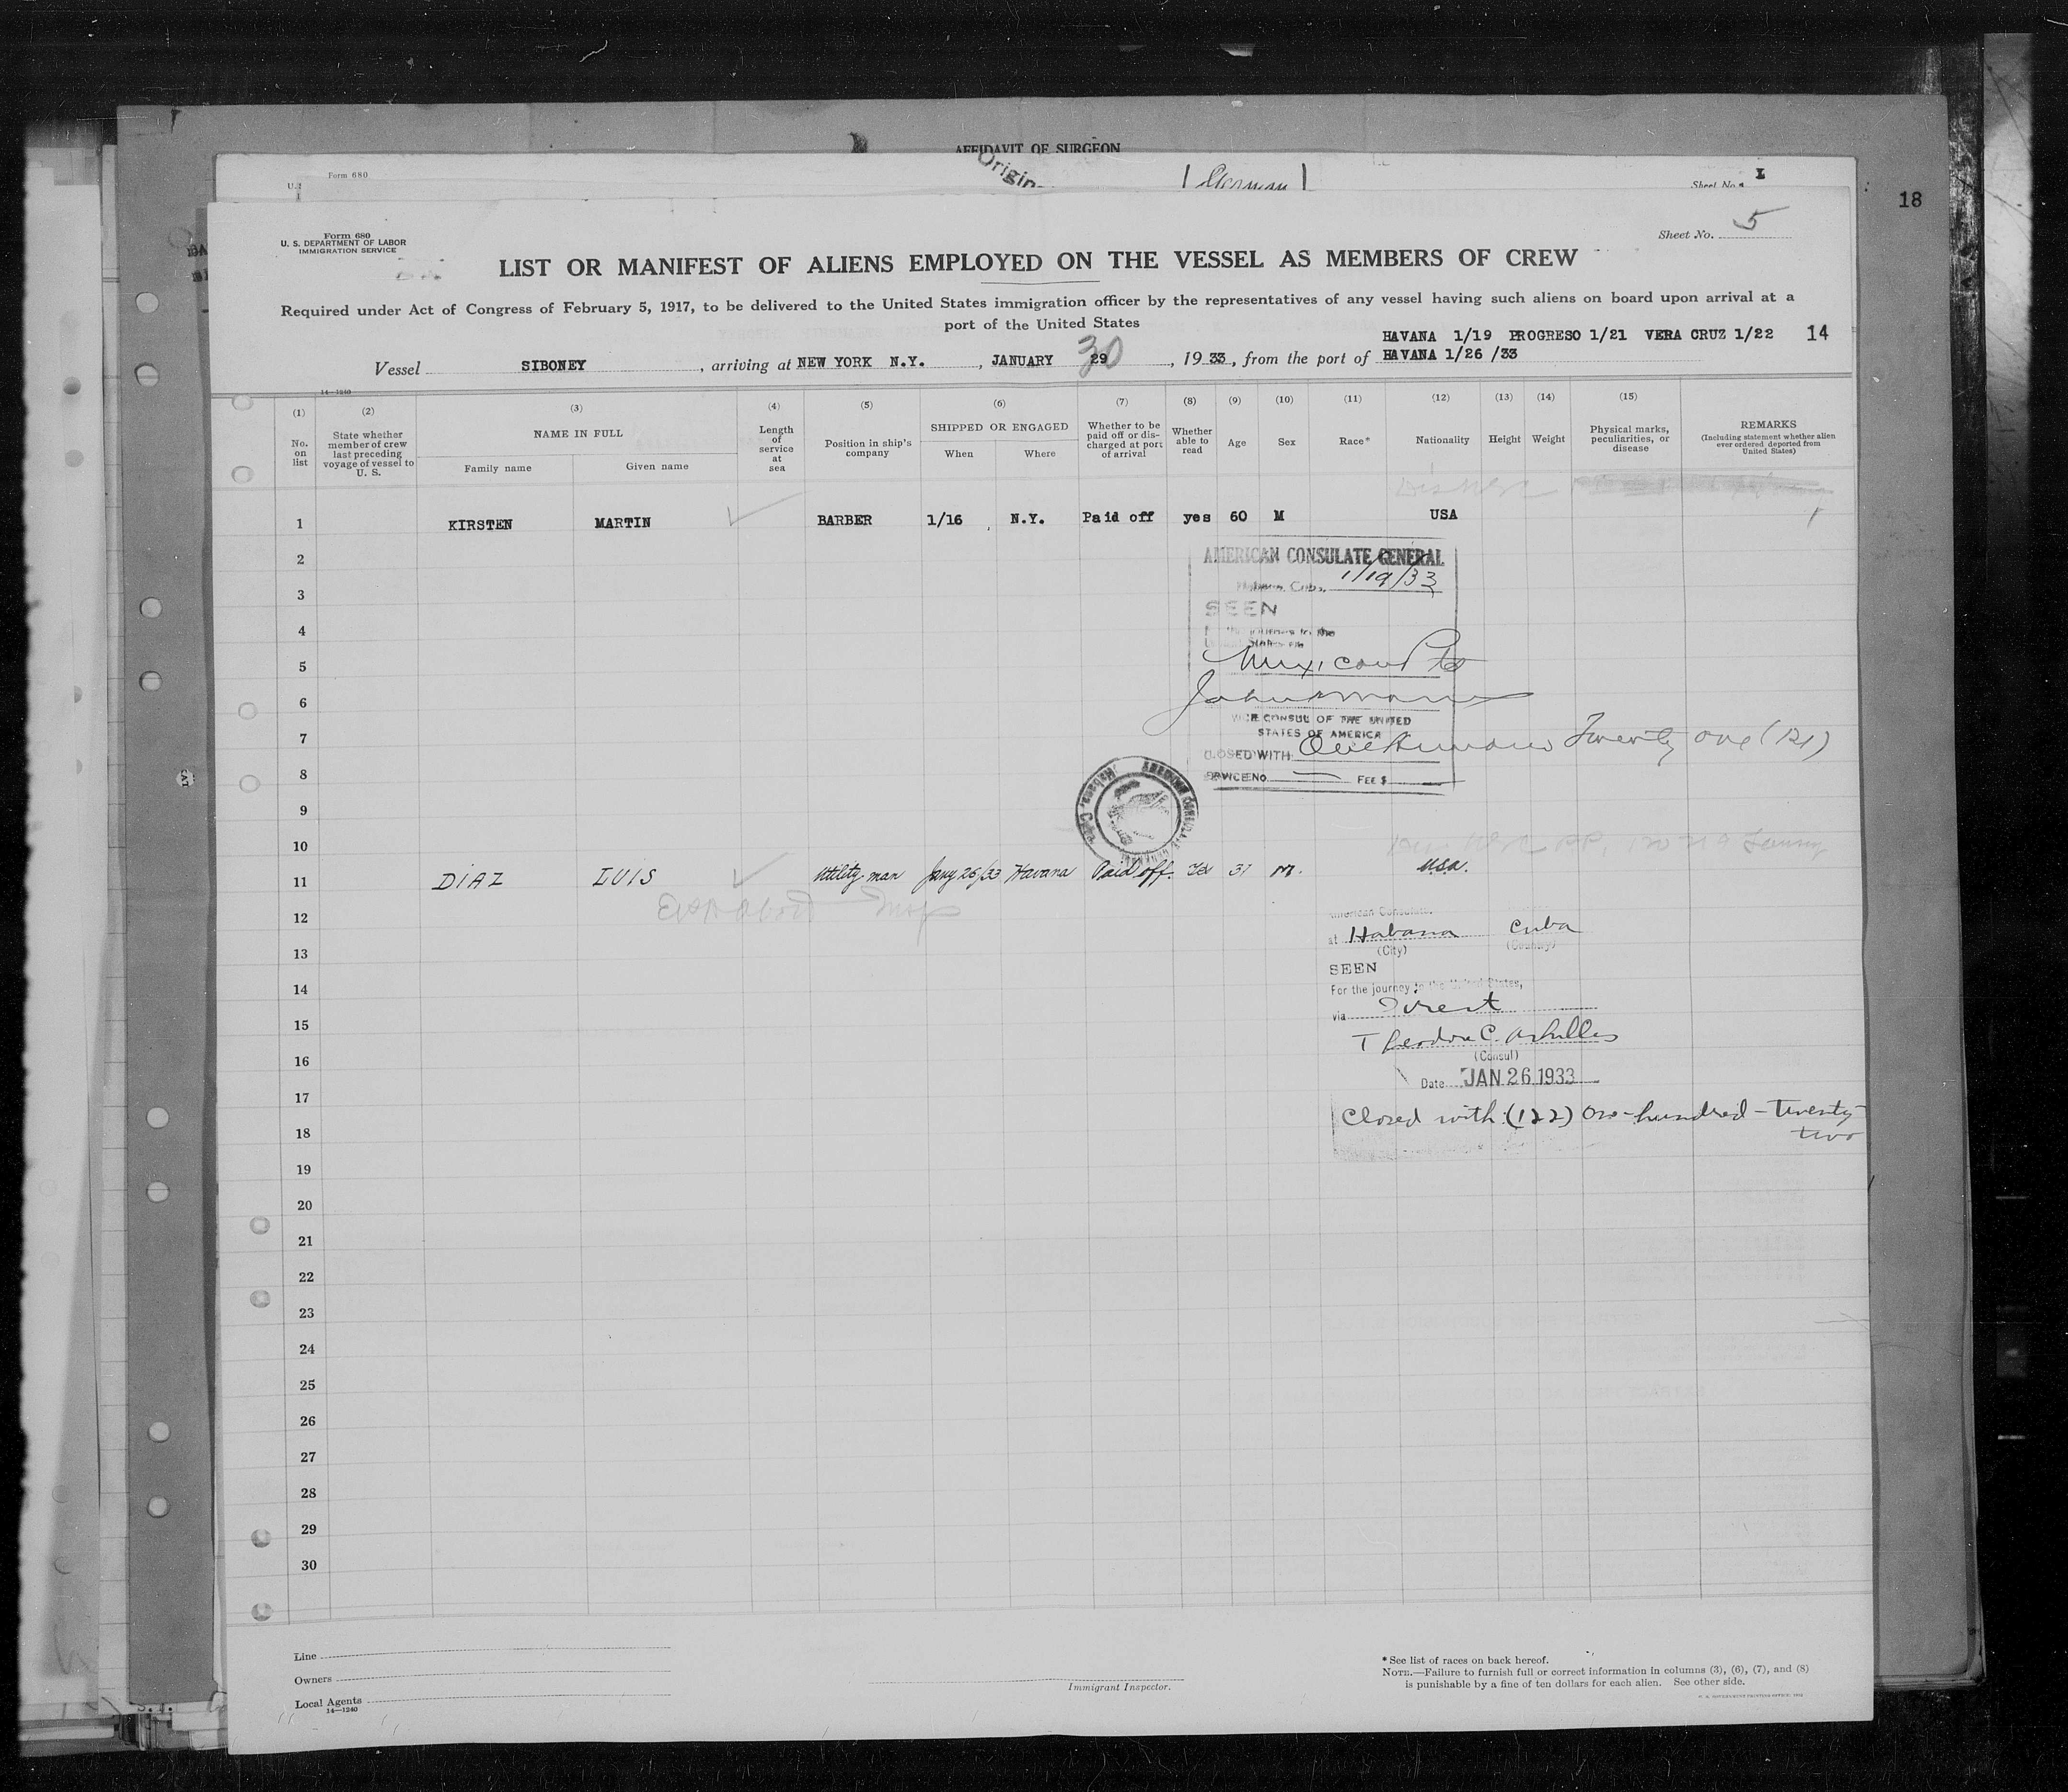 AFFIDAVIT OF SURGEON
Form 680
U.S
Origin
German
Sheet No. 1
18
Form 680
U. S. DEPARTMENT OF LABOR
IMMIGRATION SERVICE
Sheet No. 5
LIST OR MANIFEST OF ALIENS EMPLOYED ON THE VESSEL AS MEMBERS OF CREW
Required under Act of Congress of February 5, 1917, to be delivered to the United States immigration officer by the representatives of any vessel having such aliens on board upon arrival at a
port of the United States
HAVANA 1/19 PROGRESO 1/21 VERA CRUZ 1/22 14
Vessel SIBONEY, arriving at NEW YORK N.Y., JANUARY 29 30, 1933, from the port of HAVANA 1/26 /33
14—1240
(1) (2) (3) (4) (5) (6) (7) (8) (9) (10) (11) (12) (13) (14) (15)
No. on list
State whether member of crew last preceding voyage of vessel to U. S.
NAME IN FULL
Family name
Given name
Length of service at sea
Position in ship's company
SHIPPED OR ENGAGED
When
Where
Whether to be paid off or discharged at port of arrival
Whether able to read
Age
Sex
Race*
Nationality
Height
Weight
Physical marks, peculiarities, or disease
REMARKS
(Including statement whether alien ever ordered deported from United States)
1 KIRSTEN MARTIN BARBER 1/16 N.Y. Paid off yes 60 M USA
2
AMERICAN CONSULATE GENERAL
Habana, Cuba, 1/19/33
3
SEEN
4
For the journey to the
United States via
5
Mexican Pts
6
VICE CONSUL OF THE UNITED
STATES OF AMERICA
7
CLOSED WITH One Hundred Twenty one (121)
SERVICE NO. FEE $
8
AMERICAN CONSULATE GENERAL Habana, Cuba
9
10
11 DIAZ LUIS Utility man Jany 26/33 Havana Paid off. Yes 31 M. USA.
12
American Consulate
at Habana Cuba
(City) (Country)
13
SEEN
14
For the journey to the United States,
via Direct
15
Theodore C. Achilles
16
(Consul)
Date JAN 26 1933
17
Closed with: (122) One-hundred-twenty-
two
18
19
20
21
22
23
24
25
26
27
28
29
30
Line
Owners
Local Agents
14—1240
Immigrant Inspector.
* See list of races on back hereof.
NOTE.—Failure to furnish full or correct information in columns (3), (6), (7), and (8)
is punishable by a fine of ten dollars for each alien. See other side.